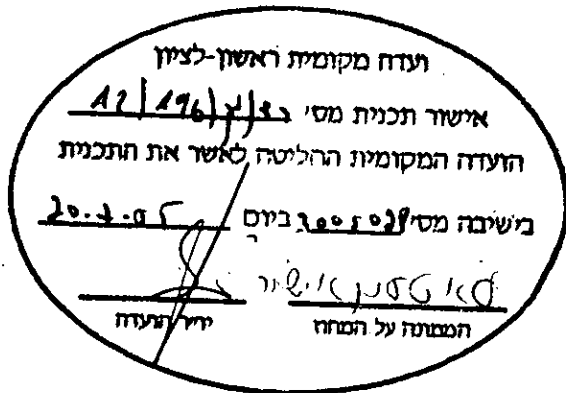 ועדה מקומית ראשון-לציון
אישור תכנית מס' רצ/1/196/12
הועדה המקומית החליטה לאשר את התכנית
בישיבה מס' ביום 20.7.05
לא טעון אישור
הממונה על המחוז יו״ר הועדה